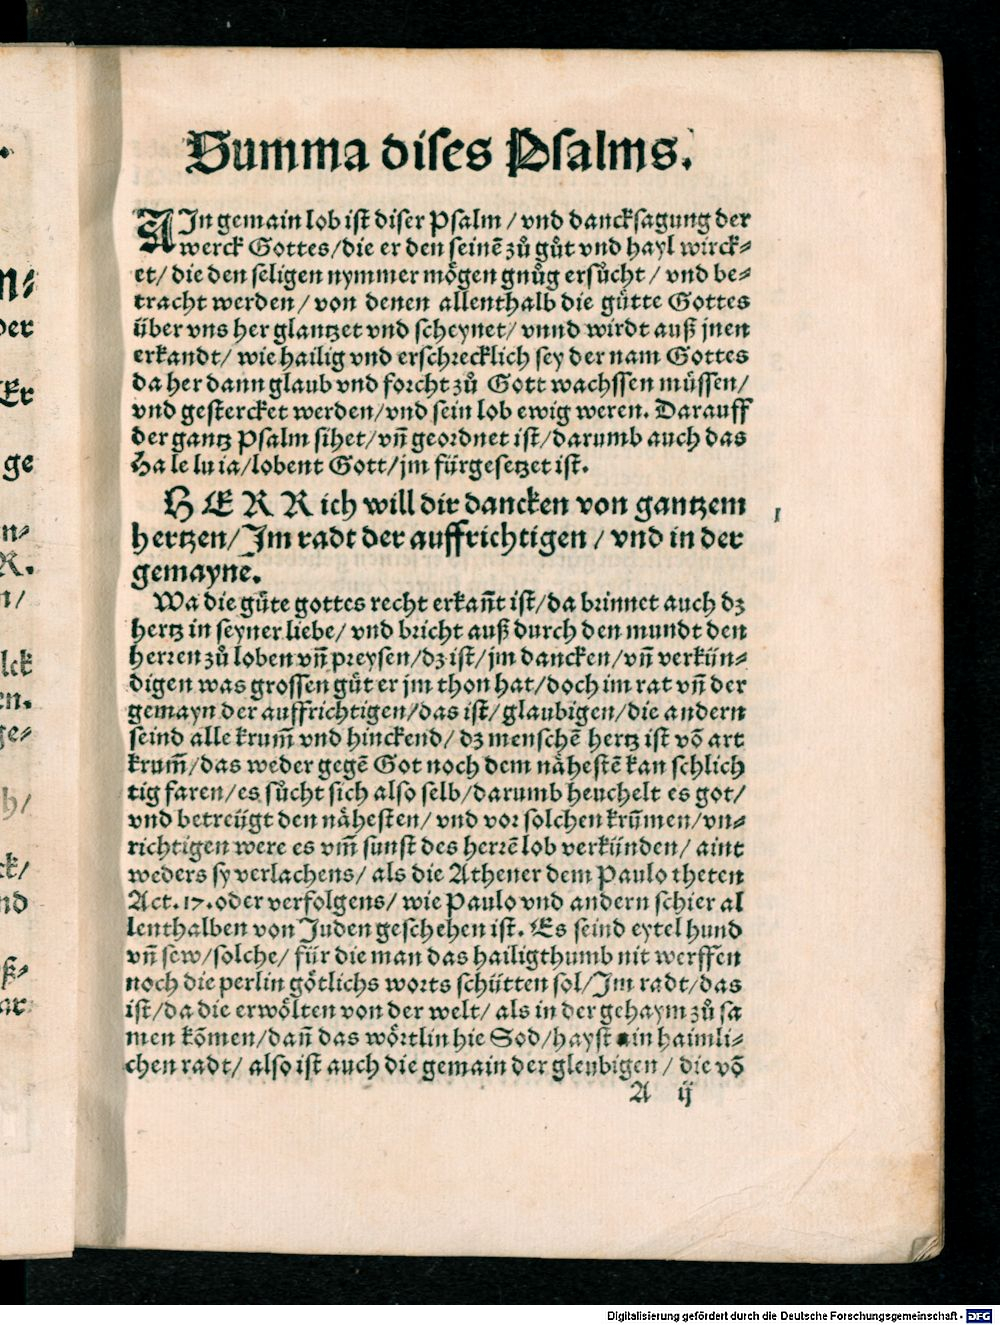 Summa dises Psalms.
AIn gemain lob ist diser Psalm / vnd dancksagung der
werck Gottes/die er den seinē zů gůt vnd hayl wirck⸗
et/ die den seligen nymmer mögen gnůg ersůcht / vnd be⸗
tracht werden/ von denen allenthalb die gůtte Gottes
über vns her glantzet vnd scheynet/ vnnd wirdt auß jnen
erkandt/ wie hailig vnd erschrecklich sey der nam Gottes
da her dann glaub vnd forcht zů Gott wachssen müssen/
vnd gestercket werden/vnd sein lob ewig weren. Darauff
der gantz Psalm sihet/vn̄ geordnet ist/darumb auch das
Ha le lu ia/lobent Gott/jm fürgesetzet ist.
HERR ich will dir dancken von gantzem
hertzen/Im radt der auffrichtigen / vnd in der
gemayne.
I
Wa die gůte gottes recht erkan̄t ist/da brinnet auch dz
hertz in seyner liebe/ vnd bricht auß durch den mundt den
herren zů loben vn̄ preysen/dz ist/jm dancken/vn̄ verkün⸗
digen was grossen gůt er jm thon hat/doch im rat vn̄ der
gemayn der auffrichtigen/das ist/glaubigen/die andern
seind alle krum̄ vnd hinckend/ dz menschē hertz ist vō art
krum̄/das weder gegē Got noch dem nähestē kan schlich
tig faren/es sůcht sich also selb/darumb heuchelt es got/
vnd betreügt den nähesten/ vnd vor solchen krūmen/vn⸗
richtigen were es vm̄ sunst des herrē lob verkünden/ aint
weders sy verlachens/ als die Athener dem Paulo theten
Act.17.oder verfolgens/ wie Paulo vnd andern schier al
lenthalben von Juden geschehen ist. Es seind eytel hund
vn̄ sew/solche/ für die man das hailigthumb nit werffen
noch die perlin götlichs worts schütten sol/Im radt/das
ist/da die erwölten von der welt/ als in der gehaym zů sa
men kōmen/dan̄ das wörtlin hie Sod/hayst ain haimli⸗
chen radt/ also ist auch die gemain der gleubigen / die vō
A ij
n⸗
der
Er
ge
n⸗
R.
n/
lck
en.
ge⸗
h/
ck/
nd
ß⸗
ar
Digitalisierung gefördert durch die Deutsche Forschungsgemeinschaft - DFG